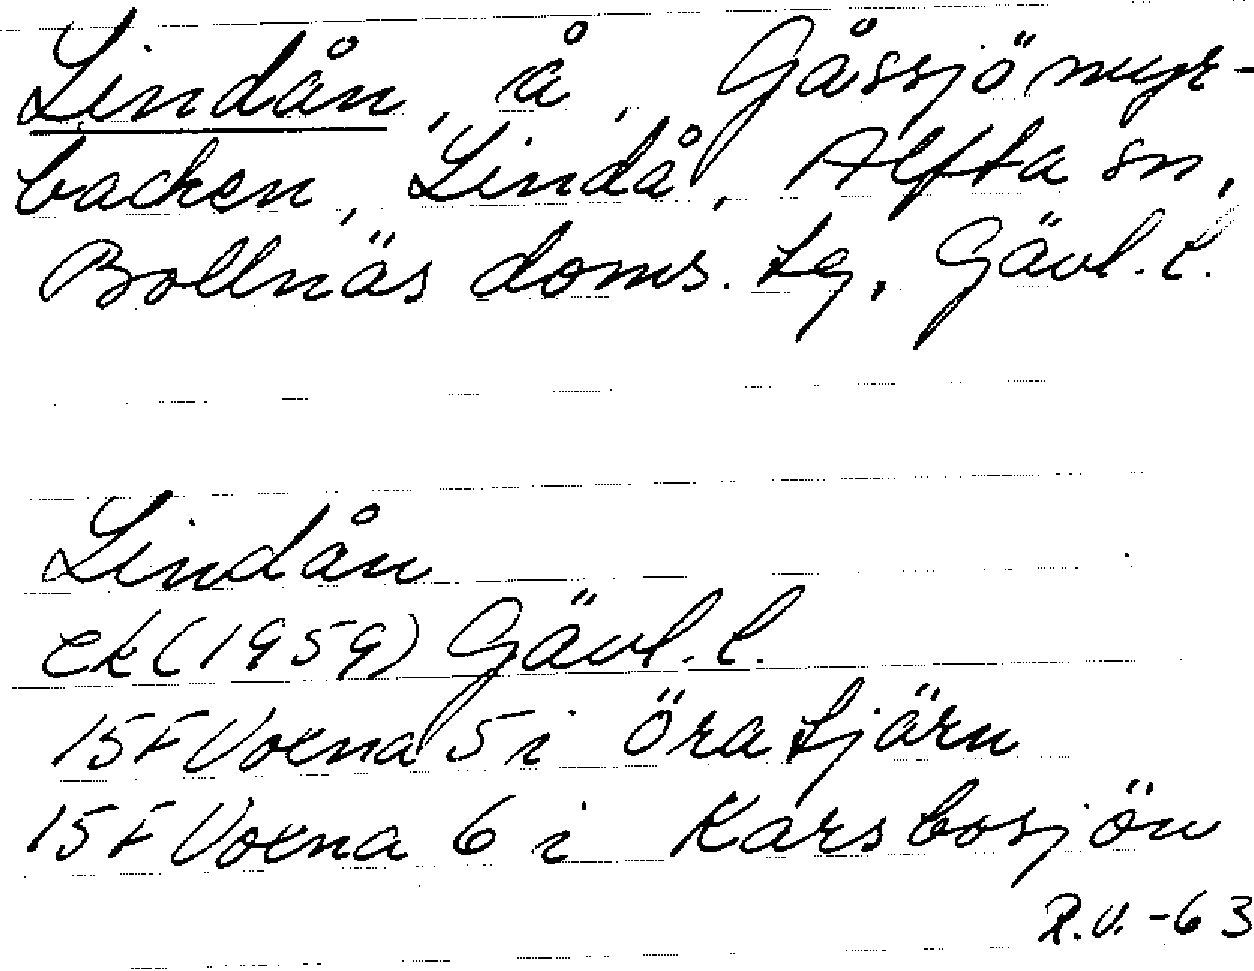 Lindån, å, Gåssjömyr-
backen, Lindå, Alfta sn,
Bollnäs doms. tg, Gävl. l.
Lindån
ek (1959) Gävl. l.
15F Voxna 5 i öratjärn
15F Voxna 6 i Karsbosjön
R.V. -63